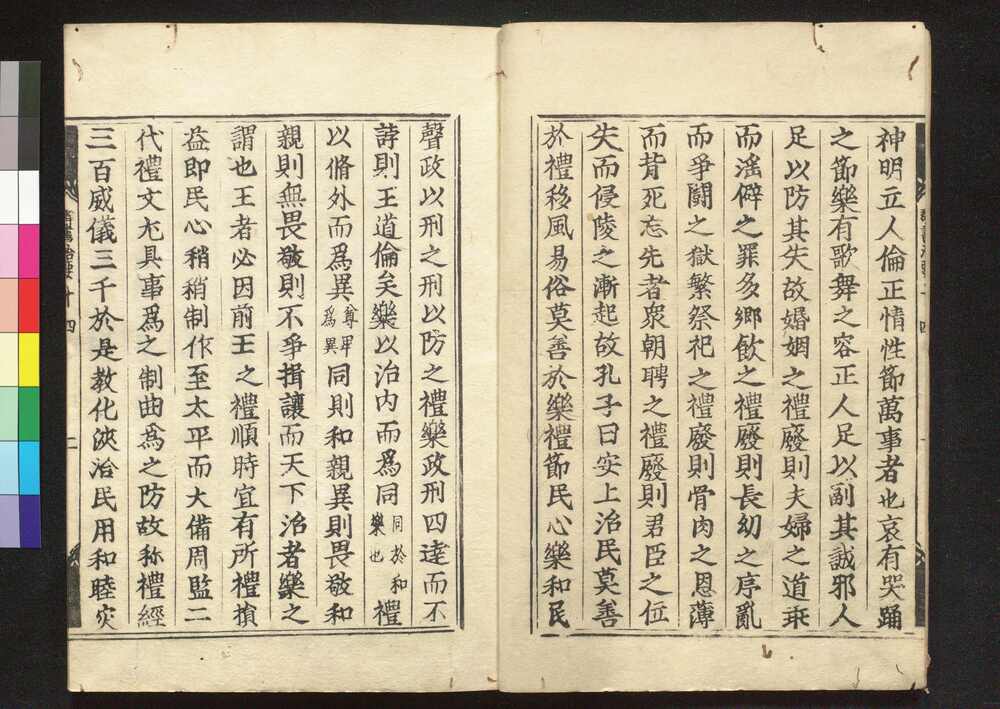 神明立人倫正情性節萬事者也哀有哭踊
之節樂有歌舞之容正人足以副其誠邪人
足以防其失故婚姻之禮廢則夫婦之道乖
而滛僻之罪多鄉飲之禮廢則長幼之序亂
而爭鬬之獄繁祭祀之禮廢則骨肉之恩薄
而背死忘先者衆朝聘之禮廢則君臣之位
失而侵陵之漸起故孔子曰安上治民莫善
於禮移風易俗莫善於樂禮節民心樂和民
聲政以刑之刑以防之禮樂政刑四達而不
誖則王道倫矣樂以治內而爲同同於和樂也禮
以脩外而爲異尊卑爲異同則和親異則畏敬和
親則無畏敬則不爭揖讓而天下治者樂之
謂也王者必因前王之禮順時宜有所禮損
益即民心稍稍制作至太平而大備周監二
代禮文尤具事爲之制曲爲之防故称禮經
三百威儀三千於是教化浹洽民用和睦灾
群書治要十四
二